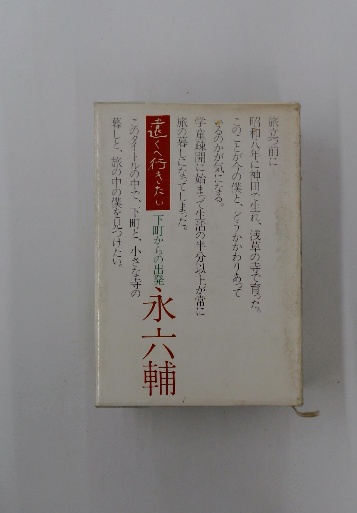 旅立つ前に
昭和八年に神田で生れ、浅草の寺で育った。
このことが今の僕と、どうかかわりあって
いるのかが気になる。
学童疎開に始まって生活の半分以上が常に
旅の暮しになってしまった。
遠くへ行きたい
下町からの出発
永六輔
このタイトルの中で、下町と、小さな寺の
暮しと、旅の中の僕を見つけたい。